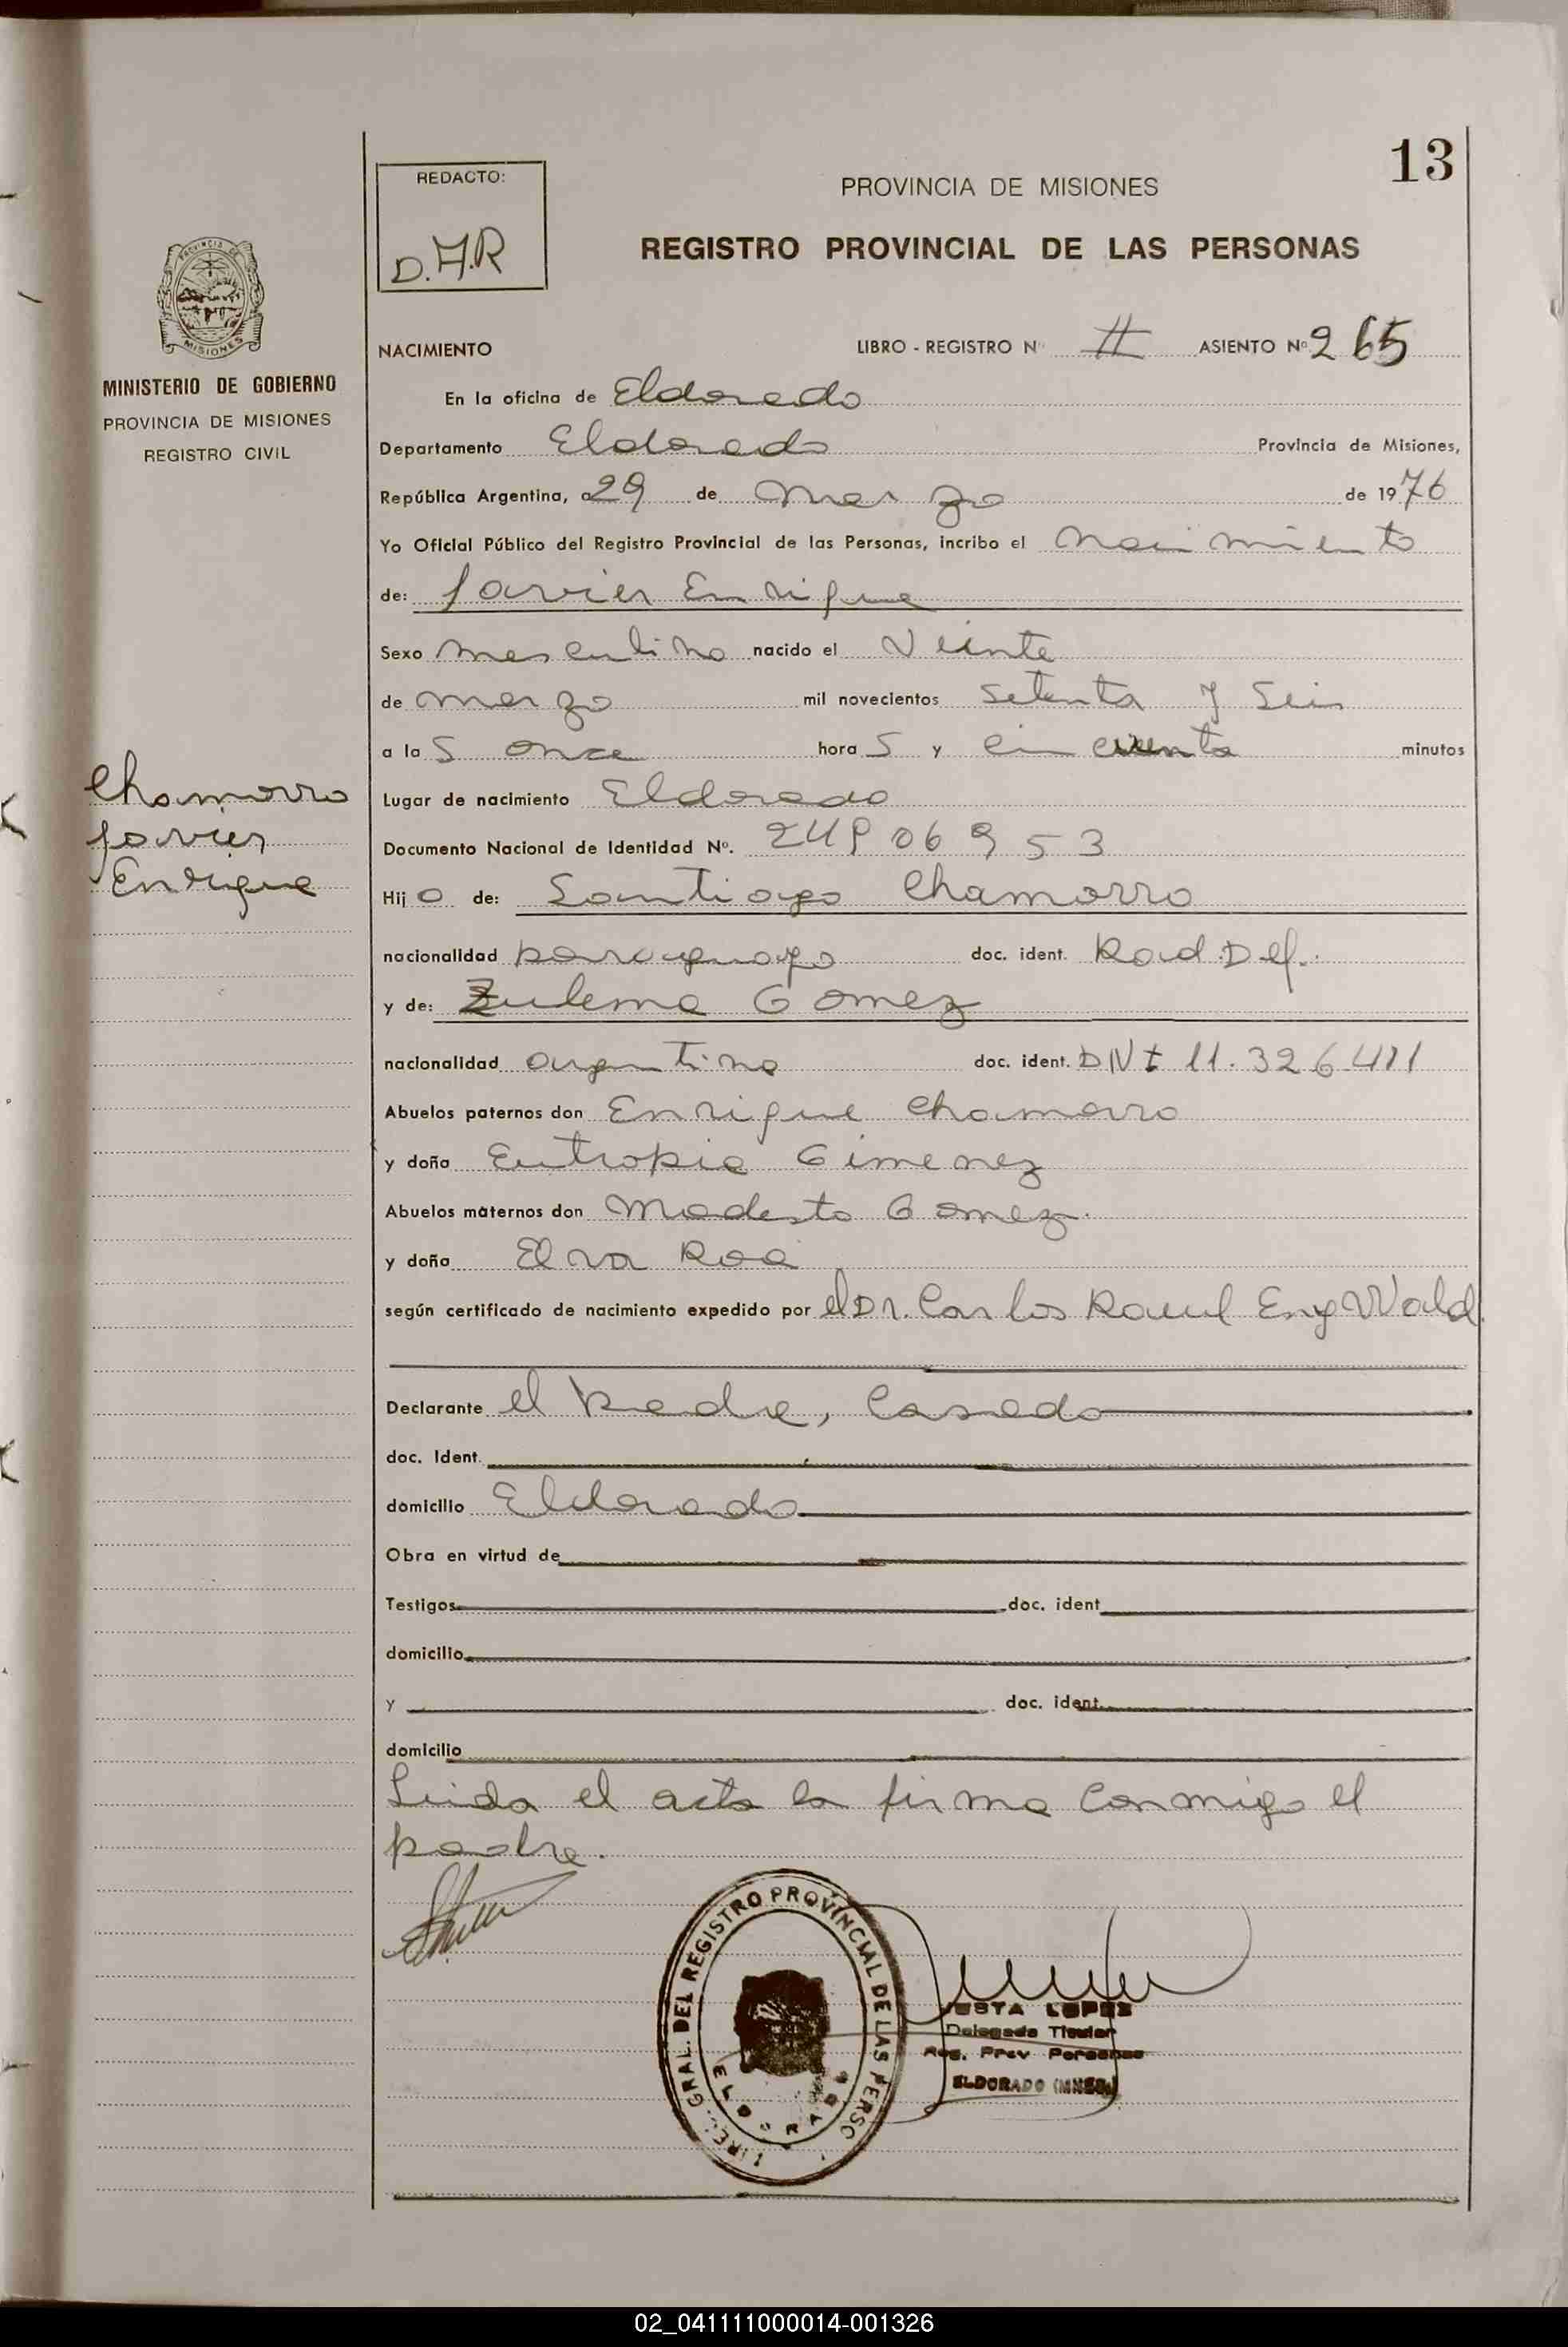 13
REDACTO:
D.A.R
PROVINCIA DE MISIONES
REGISTRO PROVINCIAL DE LAS PERSONAS
MISIONES
MINISTERIO DE GOBIERNO
PROVINCIA DE MISIONES
REGISTRO CIVIL
NACIMIENTO LIBRO - REGISTRO Nº II ASIENTO Nº 265
En la oficina de Eldorado
Departamento Eldorado Provincia de Misiones,
República Argentina, a 29 de marzo de 1976
Yo Oficial Público del Registro Provincial de las Personas, incribo el nacimiento
de: Javier Enrique
Sexo masculino nacido el veinte
de marzo mil novecientos setenta y seis
a las once horas y cincuenta minutos
Chamorro
Javier
Enrique
Lugar de nacimiento Eldorado
Documento Nacional de Identidad Nº.
Hijo de: Santiago Chamorro
nacionalidad paraguayo doc. ident. Rad. Def.
y de: Zulema Gomez
nacionalidad argentina doc. ident. DNI 11.326.411
Abuelos paternos don Enrique Chamorro
y doña Eutropia Gimenez
Abuelos maternos don Modesto Gomez.
y doña Elva Roa
según certificado de nacimiento expedido por el Dr. Carlos Raul EngWald
Declarante el padre, casado
doc. Ident.
domicilio Eldorado
Obra en virtud de
Testigos doc. ident
domicilio
y doc. ident.
domicilio
Leida el acta la firma conmigo el
padre.
GRAL. DEL REGISTRO PROVINCIAL DE LAS PERSO
ELDORADO
LOPEZ
Delegada Titular
Reg. Prov Personas
ELDORADO (MNES.)
02_041111000014-001326